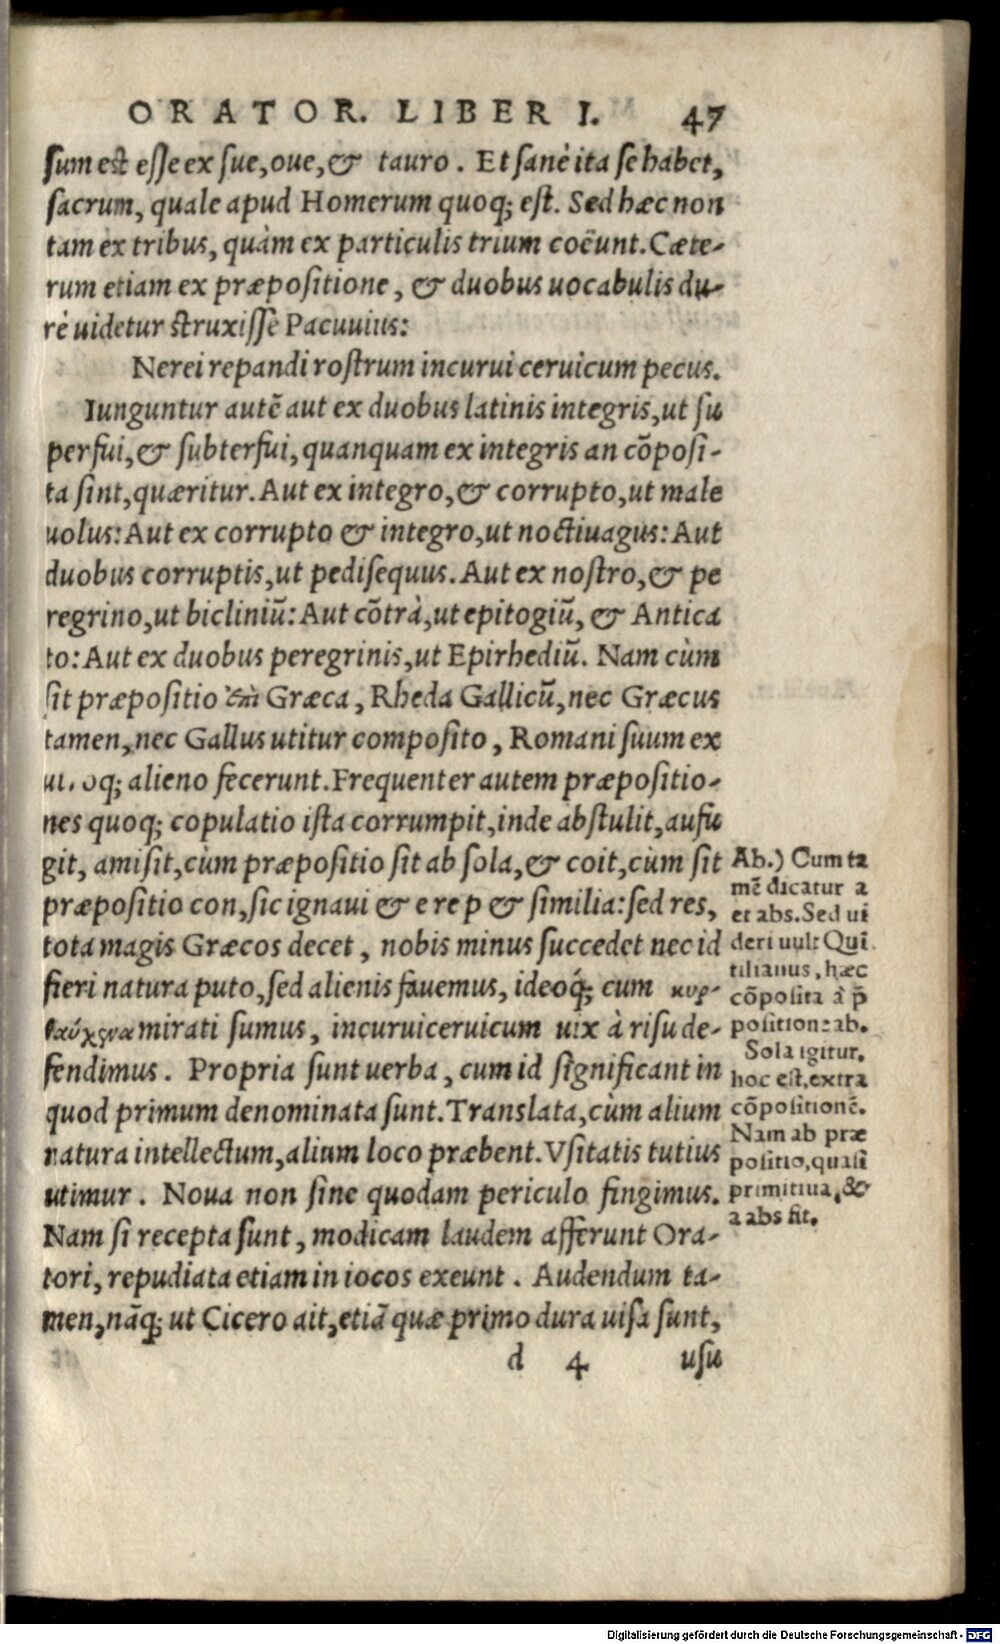 ORATOR. LIBER I. 47
sum est esse ex sue, oue, & tauro. Et sanè ita se habet,
sacrum, quale apud Homerum quoq; est. Sed hæc non
tam ex tribus, quàm ex particulis trium coëunt. Cæte-
rum etiam ex præpositione, & duobus uocabulis du-
rè uidetur struxisse Pacuuius:
Nerei repandi rostrum incurui ceruicum pecus.
Iunguntur autẽ aut ex duobus latinis integris, ut su
perfui, & subterfui, quanquam ex integris an cõposi-
ta sint, quæritur. Aut ex integro, & corrupto, ut male
uolus: Aut ex corrupto & integro, ut noctiuagus: Aut
duobus corruptis, ut pedisequus. Aut ex nostro, & pe
regrino, ut bicliniũ: Aut cõtrà, ut epitogiũ, & Antica
to: Aut ex duobus peregrinis, ut Epirhediũ. Nam cùm
sit præpositio ἐπὶ Græca, Rheda Gallicũ, nec Græcus
tamen, nec Gallus utitur composito, Romani suum ex
oq; alieno fecerunt. Frequenter autem præpositio-
nes quoq; copulatio ista corrumpit, inde abstulit, aufu
git, amisit, cùm præpositio sit ab sola, & coit, cùm sit
præpositio con, sic ignaui & e re p & similia: sed res,
tota magis Græcos decet, nobis minus succedet nec id
fieri natura puto, sed alienis fauemus, ideoq́; cum κυρ-
ταύχενα mirati sumus, incuruiceruicum uix à risu de-
fendimus. Propria sunt uerba, cum id significant in
quod primum denominata sunt. Translata, cùm alium
natura intellectum, alium loco præbent. Vsitatis tutius
utimur. Noua non sine quodam periculo fingimus.
Nam si recepta sunt, modicam laudem afferunt Ora-
tori, repudiata etiam in iocos exeunt. Audendum ta-
men, nãq; ut Cicero ait, etiã quæ primo dura uisa sunt,
d 4 usu
Ab.) Cum ta
mẽ dicatur a
et abs. Sed ui
deri uult Qui
tilianus, hæc
cõposita à p̄
positione ab.
Sola igitur,
hoc est, extra
cõpositionẽ.
Nam ab præ
positio, quasi
primitiua, &
a abs fit.
Digitalisierung gefördert durch die Deutsche Forschungsgemeinschaft - DFG